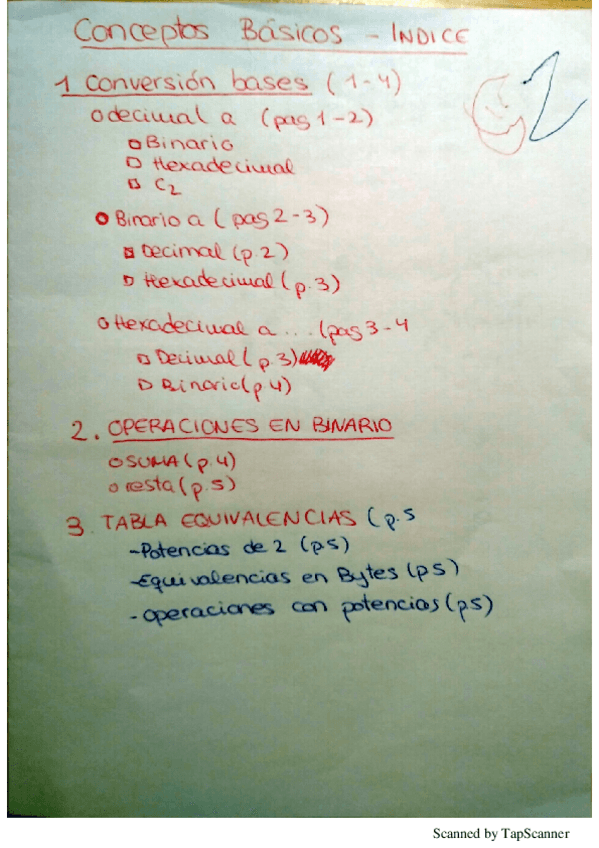 Conceptos Básicos - INDICE
1 Conversión bases (1-4)
decimal a (pag 1-2)
Binario
Hexadecimal
C2
Binario a (pag 2-3)
Decimal (p.2)
Hexadecimal (p.3)
Hexadecimal a ... (pag 3-4
Decimal (p.3)
Binario (p.4)
2. OPERACIONES EN BINARIO
SUMA (p.4)
resta (p.5)
3. TABLA EQUIVALENCIAS (p.5
-Potencias de 2 (p5)
-Equivalencias en Bytes (p5)
-operaciones con potencias (p5)
Scanned by TapScanner